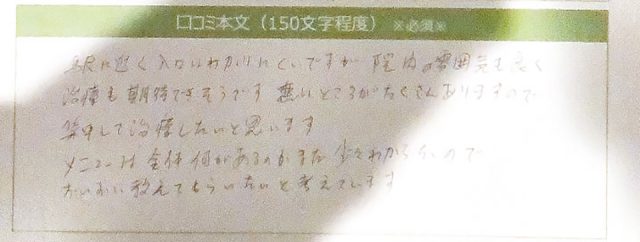 口コミ本文（150文字程度）※必須※
駅に近く入口はわかりにくいですが 院内の雰囲気も良く
治療も期待できそうです 悪いところがたくさんありますので
集中して治療したいと思います
メニューは全体何があるのかまだ少々わからないので
おいおい教えてもらいたいと考えています